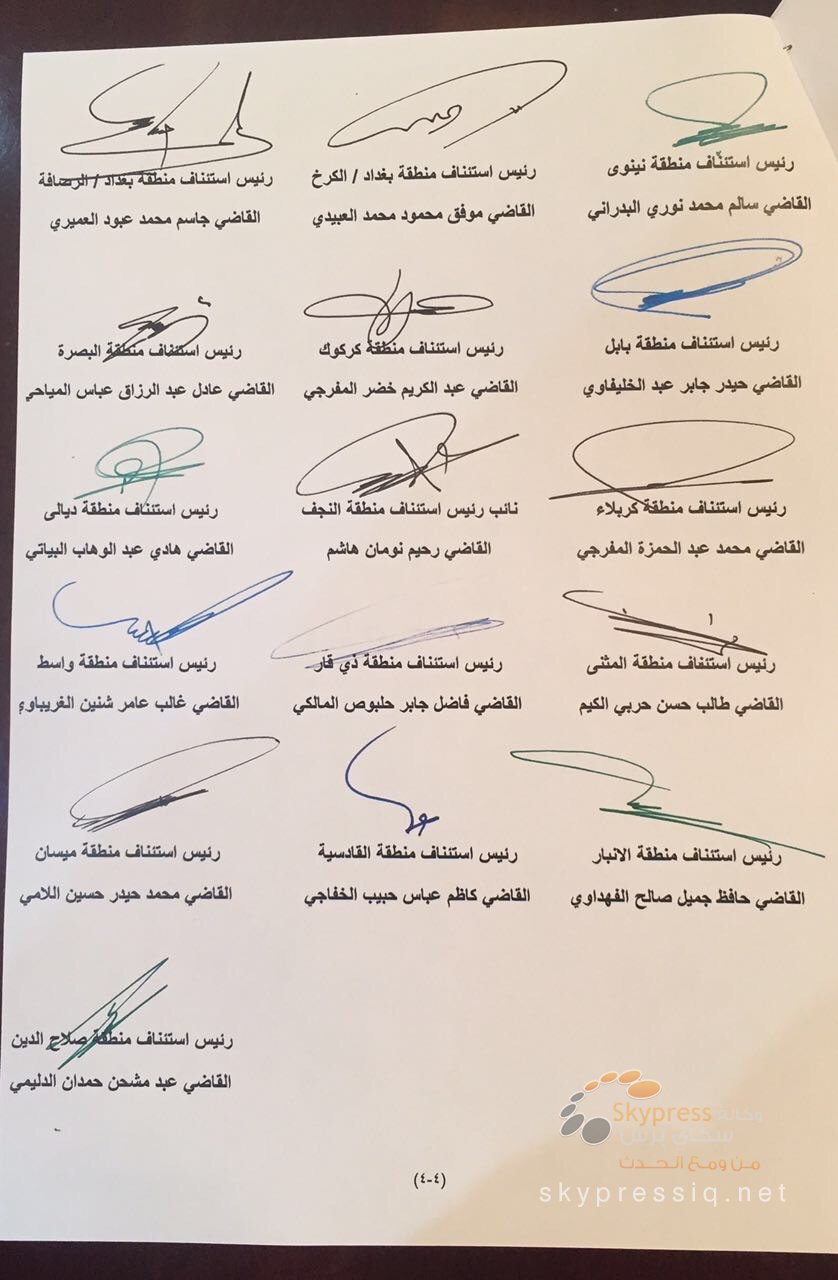 رئيس استئناف منطقة نينوى
القاضي سالم محمد نوري البدراني
رئيس استئناف منطقة بغداد / الكرخ
القاضي موفق محمود محمد العبيدي
رئيس استئناف منطقة بغداد / الرصافة
القاضي جاسم محمد عبود العميري
رئيس استئناف منطقة بابل
القاضي حيدر جابر عبد الخليفاوي
رئيس استئناف منطقة كركوك
القاضي عبد الكريم خضر المفرجي
رئيس استئناف منطقة البصرة
القاضي عادل عبد الرزاق عباس المياحي
رئيس استئناف منطقة كربلاء
القاضي محمد عبد الحمزة المفرجي
نائب رئيس استئناف منطقة النجف
القاضي رحيم نومان هاشم
رئيس استئناف منطقة ديالى
القاضي هادي عبد الوهاب البياتي
رئيس استئناف منطقة المثنى
القاضي طالب حسن حربي الكيم
رئيس استئناف منطقة ذي قار
القاضي فاضل جابر حلبوص المالكي
رئيس استئناف منطقة واسط
القاضي غالب عامر شنين الغريباوي
رئيس استئناف منطقة الانبار
القاضي حافظ جميل صالح الفهداوي
رئيس استئناف منطقة القادسية
القاضي كاظم عباس حبيب الخفاجي
رئيس استئناف منطقة ميسان
القاضي محمد حيدر حسين اللامي
رئيس استئناف منطقة صلاح الدين
القاضي عبد مشحن حمدان الدليمي
(٤-٤)
وكالة Skypress
سكاي برس
من ومع الحدث
skypressiq.net